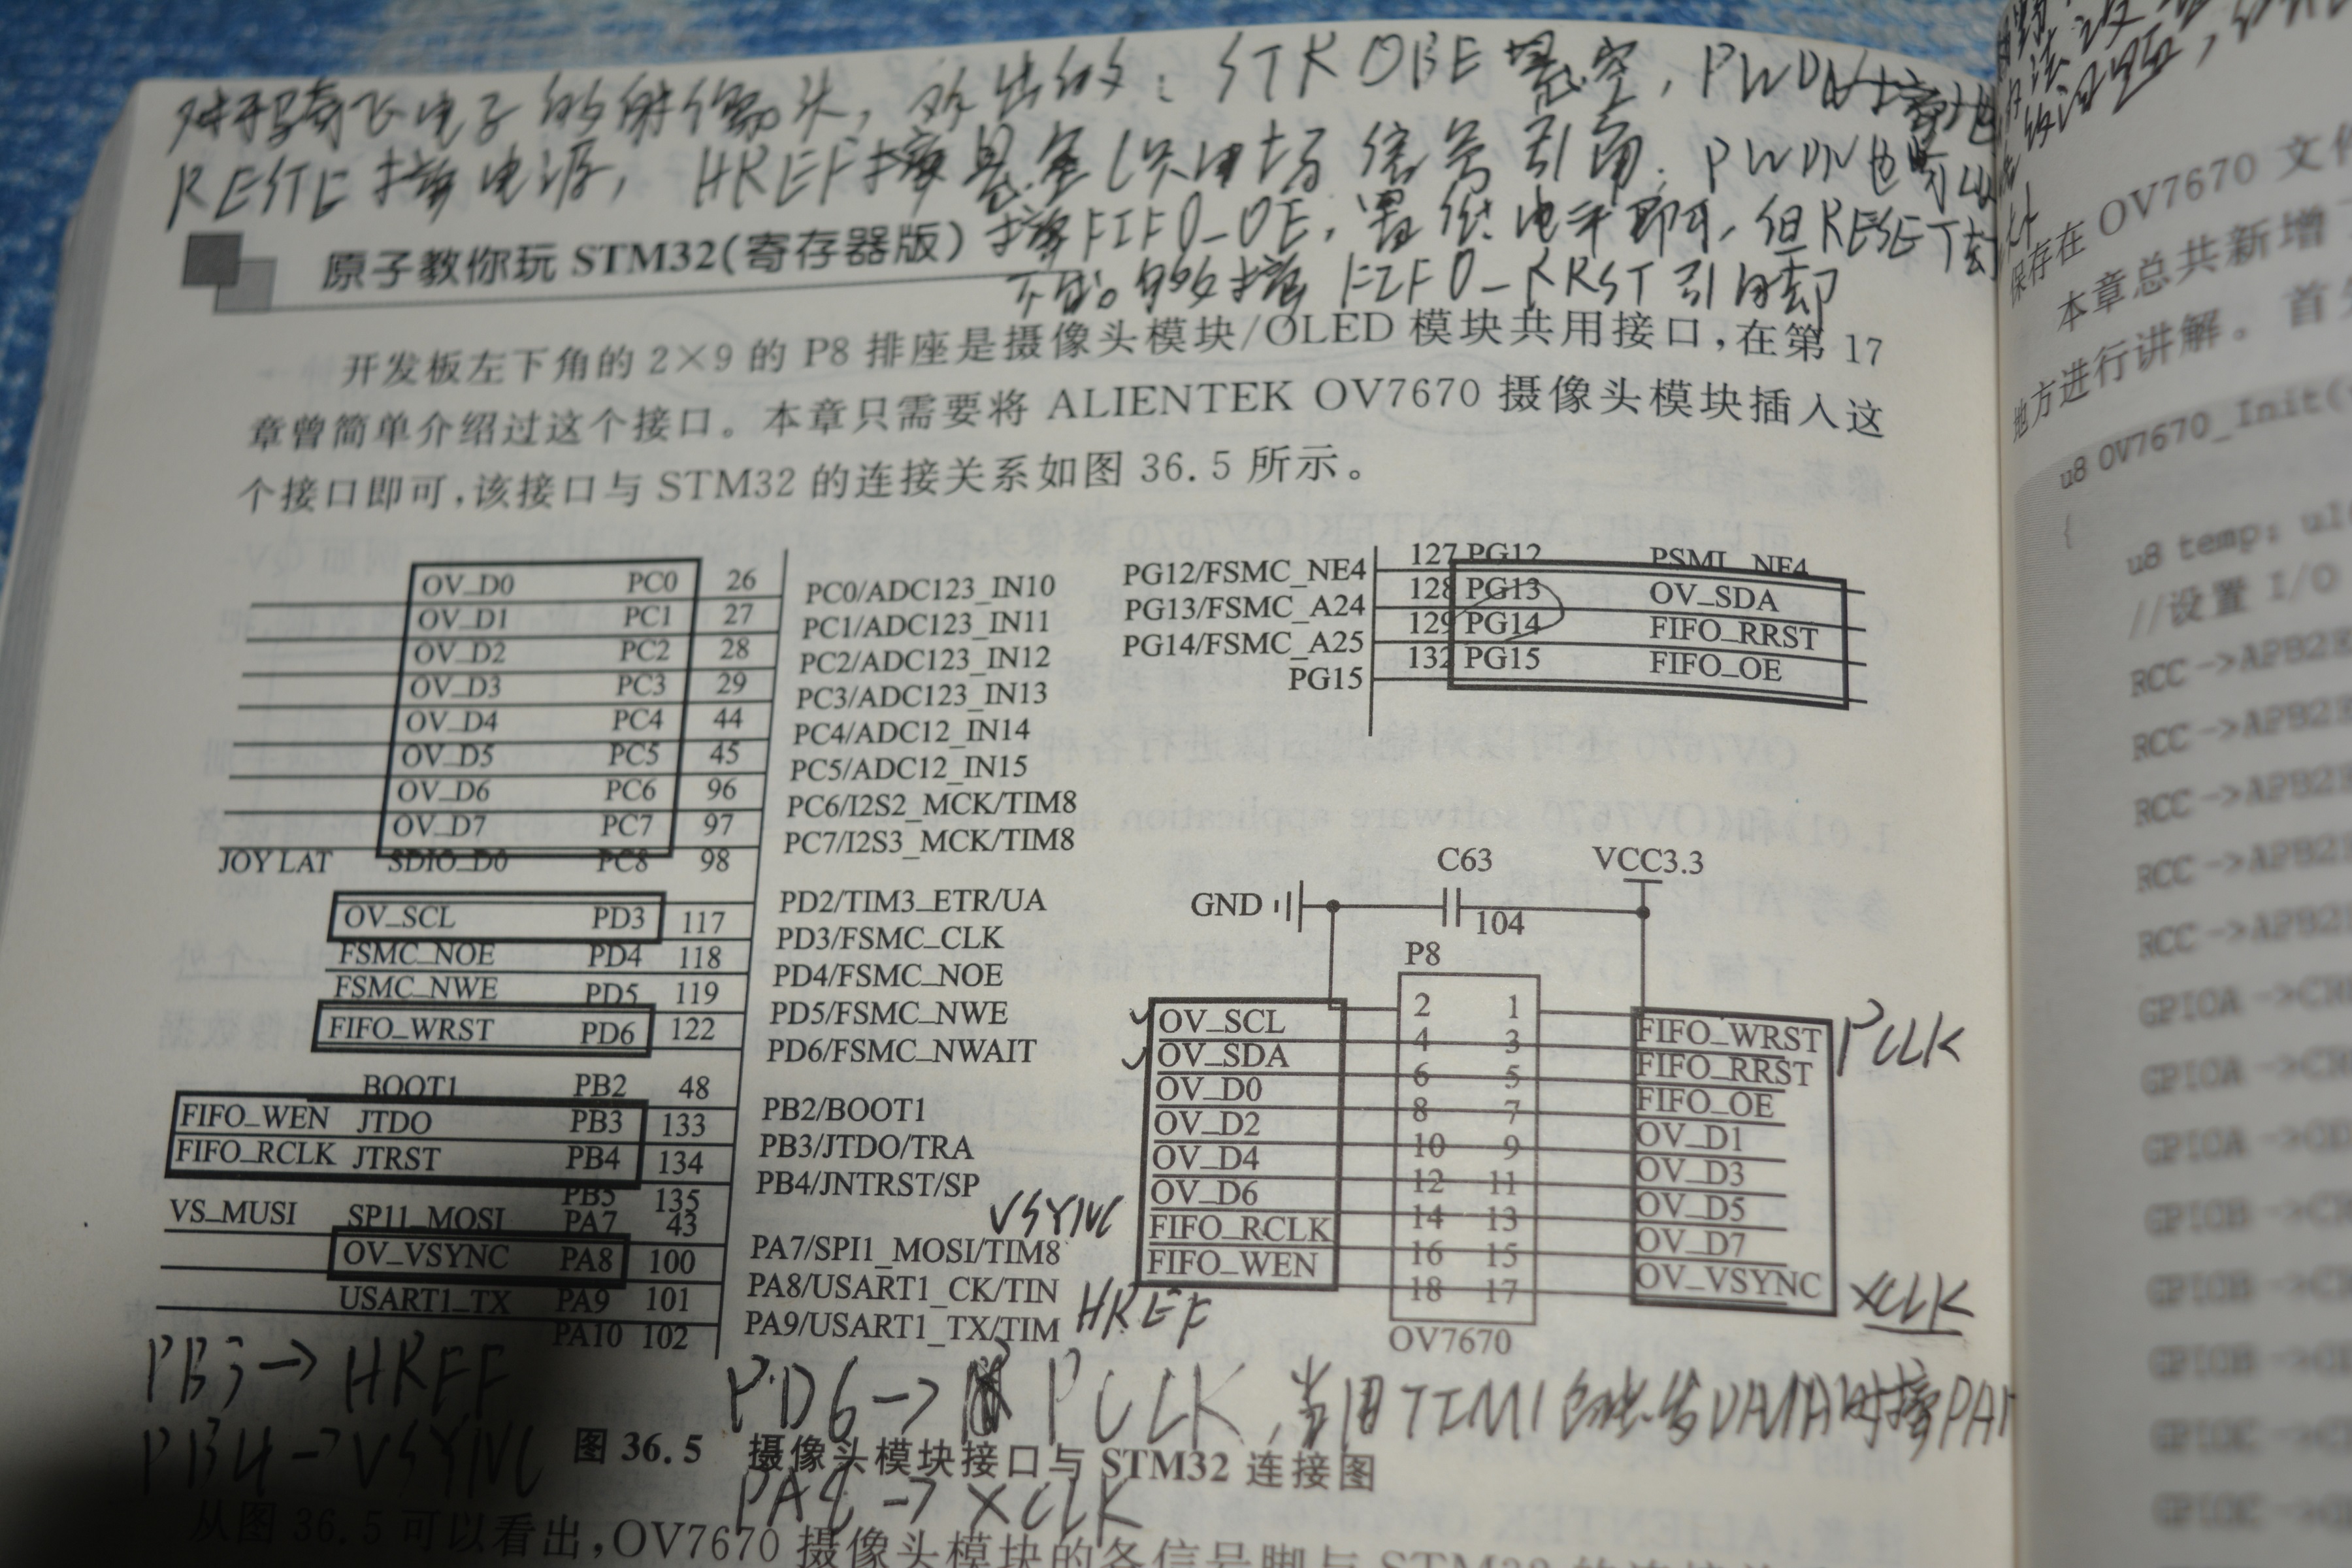 对于 飞电子的摄像头, STROBE悬空, PWDN接地
RESTE接电源, HREF接悬空 信号引角. PWDN也可以
接FIFO_OE, 置低电平即可, 但RESET却
不能。 接FIFO_RRST引
原子教你玩 STM32(寄存器版)
开发板左下角的 2×9 的 P8 排座是摄像头模块/OLED 模块共用接口,在第 17
章曾简单介绍过这个接口。本章只需要将 ALIENTEK OV7670 摄像头模块插入这
个接口即可,该接口与 STM32 的连接关系如图 36.5 所示。
OV_D0 PC0 26 PC0/ADC123_IN10
OV_D1 PC1 27 PC1/ADC123_IN11
OV_D2 PC2 28 PC2/ADC123_IN12
OV_D3 PC3 29 PC3/ADC123_IN13
OV_D4 PC4 44 PC4/ADC12_IN14
OV_D5 PC5 45 PC5/ADC12_IN15
OV_D6 PC6 96 PC6/I2S2_MCK/TIM8
OV_D7 PC7 97 PC7/I2S3_MCK/TIM8
JOY LAT SDIO_D0 PC8 98
PD2/TIM3_ETR/UA
OV_SCL PD3 117 PD3/FSMC_CLK
FSMC_NOE PD4 118 PD4/FSMC_NOE
FSMC_NWE PD5 119 PD5/FSMC_NWE
FIFO_WRST PD6 122 PD6/FSMC_NWAIT
BOOT1 PB2 48 PB2/BOOT1
FIFO_WEN JTDO PB3 133 PB3/JTDO/TRA
FIFO_RCLK JTRST PB4 134 PB4/JNTRST/SP
PB5 135
VS_MUSI SP11_MOSI PA7 43 PA7/SPI1_MOSI/TIM8
OV_VSYNC PA8 100 PA8/USART1_CK/TIN
USART1_TX PA9 101 PA9/USART1_TX/TIM
PA10 102
PG12/FSMC_NE4 127 PG12 PSML_NE4
PG13/FSMC_A24 128 PG13 OV_SDA
PG14/FSMC_A25 129 PG14 FIFO_RRST
PG15 132 PG15 FIFO_OE
C63 VCC3.3
GND 104
P8
2 1
OV_SCL 4 3 FIFO_WRST PCLK
OV_SDA 6 5 FIFO_RRST
OV_D0 8 7 FIFO_OE
OV_D2 10 9 OV_D1
OV_D4 12 11 OV_D3
OV_D6 14 13 OV_D5
VSYNC FIFO_RCLK 16 15 OV_D7
HREF FIFO_WEN 18 17 OV_VSYNC XCLK
OV7670
PB3→HREF
PB4→VSYNC
PD6→PCLK, 当用TIM1 DMA时接PA
图 36.5 摄像头模块接口与 STM32 连接图
PA8→XCLK
从图 36.5 可以看出,OV7670 摄像头模块的各信号脚与 STM32 的连接
保存在 OV7670 文件
本章总共新增
地方进行讲解。首先
u8 OV7670_Init(
{
u8 temp; u16
//设置 I/O
RCC->APB2E
RCC->APB2E
RCC->APB2E
RCC->APB2
RCC->APB2
GPIOA->CR
GPIOA->CR
GPIOA->
GPIOB->
GPIOB->
GPIOB->
GPIOC->
GPIOC->